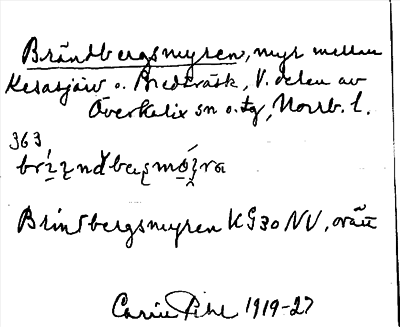 Brändbergsmyren, myr mellan
Kesasjärv o. Bredträsk, V. delen av
Överkalix sn o. tg, Norrb. l.
363
Brintbergsmyren KG30 NV, orätt
Carin Pihl 1919-27